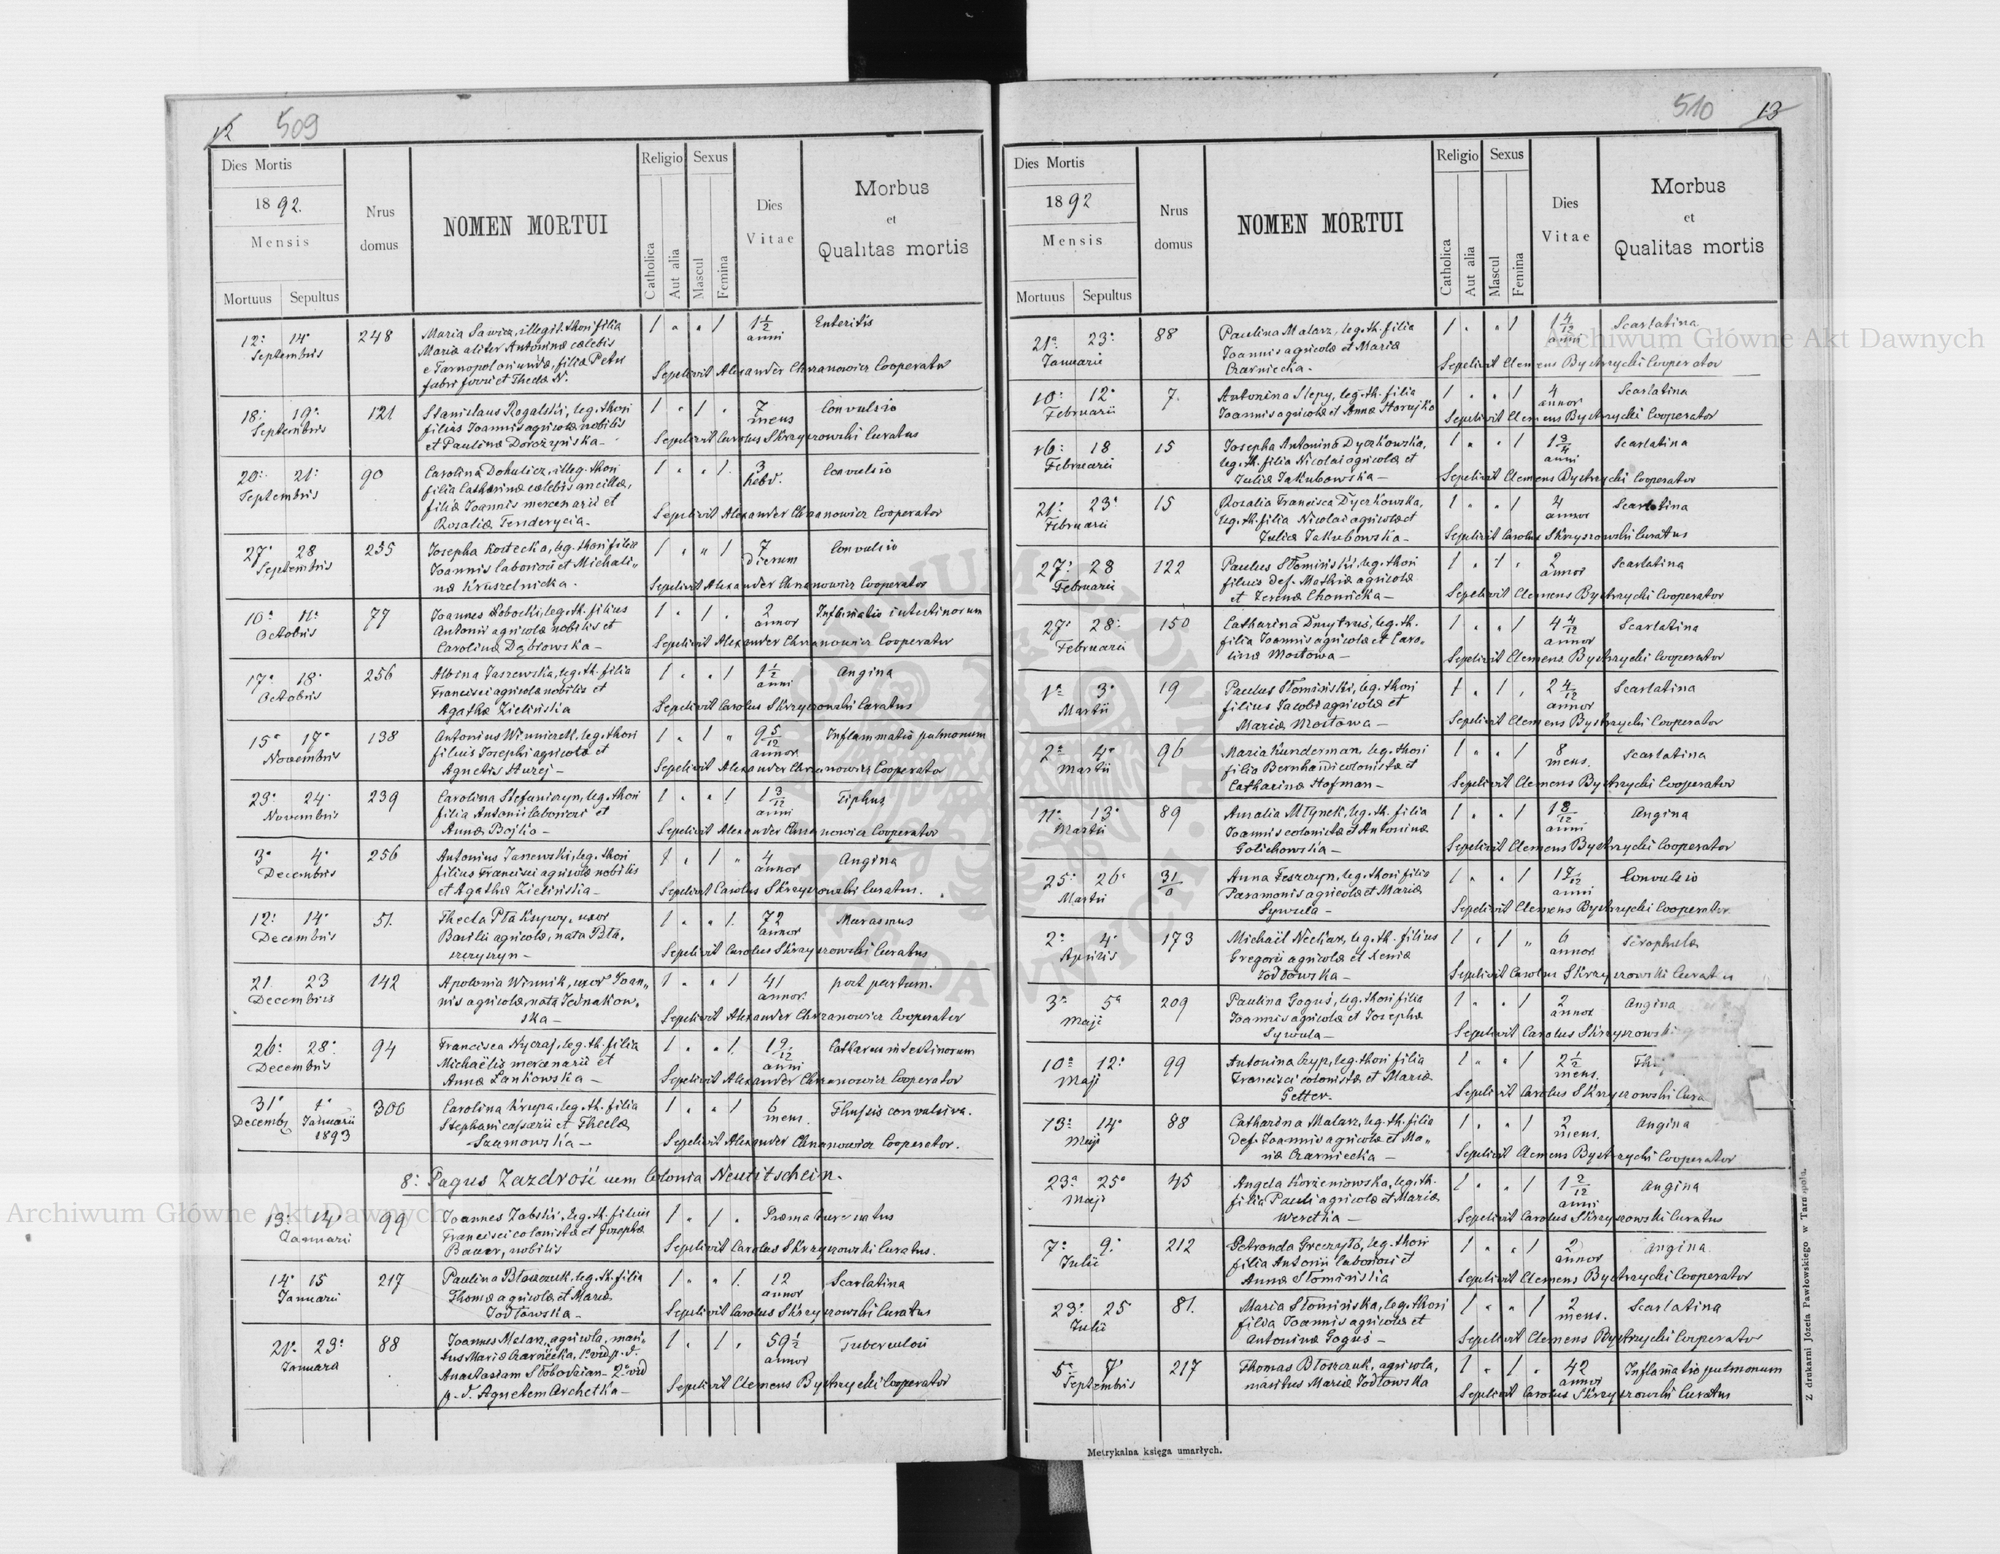 12 509
Dies Mortis
1892.
Mensis
Mortuus Sepultus
Nrus
domus
NOMEN MORTUI
Religio
Catholica
Aut alia
Sexus
Mascul
Femina
Dies
Vitae
Morbus
et
Qualitas mortis
12. 14. 248 Maria Sawicz, illegit. thori filia 1 " " 1 1 1/2 Enteritis
Septembris Mariæ aliter Antoninæ cælebis anni
e Tarnopol oriundæ, filiæ Petri
fabri et Theclæ N. Sepelivit Alexander Chrzanowicz Cooperator
18. 19. 121 Stanislaus Rogalski, leg. thori 1 " 1 " 7 Convulsio
Septembris filius Joannis agricolæ nobilis mens
et Paulinæ Dorożyńska — Sepelivit Carolus Skrzyszowski Curatus
20. 21. 90 Carolina Dohulicz, illeg. thori 1 " " 1. 3 Convulsio
Septembris filia Catharinæ cælebis ancillæ, hebd.
filiæ Joannis mercenarii et
Rosaliæ Tenderycia. Sepelivit Alexander Chrzanowicz Cooperator
27. 28 235 Josepha Kostecka, leg. thori filia 1 " " 1 7 Convulsio
Septembris Joannis laboriosi et Michali- dierum
næ Kruszelnicka. Sepelivit Alexander Chrzanowicz Cooperator
10. 11. 77 Joannes Łobocki, leg. th. filius 1 " 1 " 2 Inflamatio intestinorum
Octobris Antonii agricolæ nobilis et annor
Carolinæ Dąbrowska — Sepelivit Alexander Chrzanowicz Cooperator
17. 18. 256 Albina Jaszewska, leg. th. filia 1 " " 1 1 1/2 Angina
Octobris Francisci agricolæ nobilis et anni
Agathæ Zielińska Sepelivit Carolus Skrzyszowski Curatus
15. 17. 138 Antonius Winnicell, leg. thori 1 " 1 " 9 5/12 Inflammatio pulmonum
Novembris filius Josephi agricolæ et annor
Agnetis Hurej — Sepelivit Alexander Chrzanowicz Cooperator
23. 24. 239 Carolina Stefaniczyn, leg. thori 1 " " 1 1 3/12 Tiphus
Novembris filia Antonii laboriosi et anni
Annæ Bojko — Sepelivit Alexander Chrzanowicz Cooperator
3. 4. 256 Antonius Janewski, leg. thori 1 " 1 " 4 Angina
Decembris filius Francisci agricolæ nobilis annor
et Agathæ Zielińska — Sepelivit Carolus Skrzyszowski Curatus.
12. 14. 51. Thecla Ptaksywy, uxor 1 " " 1. 72 Marasmus
Decembris Basilii agricolæ, nata Bła- annor
szczyszyn — Sepelivit Carolus Skrzyszowski Curatus
21 23 142 Apolonia Winnik, uxor Joan- 1 " " 1 41 post partum.
Decembris nis agricolæ, nata Jednakow- annor.
ska — Sepelivit Alexander Chrzanowicz Cooperator
26. 28. 94 Francisca Nycraj, leg. th. filia 1 " " 1. 1 9/12 Catharus intestinorum
Decembris Michaëlis mercenarii et anni
Annæ Lankowska — Sepelivit Alexander Chrzanowicz Cooperator
31. 1. 306 Carolina Krupa, leg. th. filia 1 " " 1 6 Thussis convulsiva.
Decemb. Januarii Stephani et Theclæ mens.
1893 Szumowska — Sepelivit Alexander Chrzanowicz Cooperator.
8. Pagus Zazdrość cum Colonia Neutitschein.
13. 14. 99 Joannes Zabski, leg. th. filius 1 " 1 " Præmature natus
Januarii Francisci colonistæ et Josephæ
Bauer, nobilis Sepelivit Carolus Skrzyszowski Curatus.
14. 15 217 Paulina Błoszczuk, leg. th. filia 1 " " 1. 12 Scarlatina
Januarii Thomæ agricolæ et Mariæ annor
Jodłowska — Sepelivit Carolus Skrzyszowski Curatus
21. 23. 88 Joannes Malarz, agricola, mari- 1 " 1 " 59 1/2 Tuberculosi
Januarii tus Mariæ Czarniecka, 1. vid. p. d. annor
Anastasiam Słobodzian — 2. vid
p. d. Agnetem Archetka — Sepelivit Clemens Bystrzycki Cooperator
510 13
Dies Mortis
1892
Mensis
Mortuus Sepultus
Nrus
domus
NOMEN MORTUI
Religio
Catholica
Aut alia
Sexus
Mascul
Femina
Dies
Vitae
Morbus
et
Qualitas mortis
21. 23. 88 Paulina Malarz, leg. th. filia 1 " " 1 1 4/12 Scarlatina
Januarii Joannis agricolæ et Mariæ anni
Czarniecka. Sepelivit Clemens Bystrzycki Cooperator
10. 12. 7. Antonina Slepy, leg. th. filia 1 " " 1 4 Scarlatina
Februarii Joannis agricolæ et Annæ Horajko annor
Sepelivit Clemens Bystrzycki Cooperator
16. 18 15 Josepha Antonina Dyczkowska, 1 " " 1 1 3/4 Scarlatina
Februarii leg. th. filia Nicolai agricolæ et anni
Juliæ Jakubowska — Sepelivit Clemens Bystrzycki Cooperator
21. 23. 15 Rosalia Francisca Dyczkowska, 1 " " 1 4 Scarlatina
Februarii leg. th. filia Nicolai agricolæ et annor
Juliæ Jakubowska — Sepelivit Carolus Skrzyszowski Curatus
27. 28 122 Paulus Słomiński, leg. thori 1 " 1 " 2 Scarlatina
Februarii filius def. Mathiæ agricolæ annor
et Xeniæ Chomicka — Sepelivit Clemens Bystrzycki Cooperator
27. 28. 150 Catharina Dmytrus, leg. th. 1 " " 1 4 4/12 Scarlatina
Februarii filia Joannis agricolæ et Caro- annor
linæ Mostowa — Sepelivit Clemens Bystrzycki Cooperator
1. 3. 19 Paulus Słomiński, leg. thori 1 " 1 " 2 4/12 Scarlatina
Martii filius Jacobi agricolæ et annor
Mariæ Mostowa — Sepelivit Clemens Bystrzycki Cooperator
2. 4. 96 Maria Kunderman, leg. thori 1 " " 1 8 Scarlatina
Martii filia Bernhardi colonistæ et mens.
Catharinæ Hofman — Sepelivit Clemens Bystrzycki Cooperator
11. 13. 89 Amalia Młynek, leg. th. filia 1 " " 1 1 8/12 Angina
Martii Joannis colonistæ et Antoninæ anni
Golichowska — Sepelivit Clemens Bystrzycki Cooperator
25. 26. 31/a Anna Teszczyn, leg. thori filia 1 " " 1 1 9/12 Convulsio
Martii Paramonis agricolæ et Mariæ anni
Sywula — Sepelivit Clemens Bystrzycki Cooperator.
2. 4. 173 Michaël Neckar, leg. th. filius 1 " 1 " 6 Scrophulæ
Aprilis Gregorii agricolæ et Xeniæ annor
Jodłowska — Sepelivit Carolus Skrzyszowski Curatus
3. 5. 209 Paulina Goguś, leg. thori filia 1 " " 1 2 Angina
Maji Joannis agricolæ et Josephæ annor
Sywula — Sepelivit Carolus Skrzyszowski
10. 12. 99 Antonina Czyp, leg. thori filia 1 " " 1 2 1/2
Maji Francisci colonistæ et Mariæ mens.
Getter. Sepelivit Carolus Skrzyszowski Cura
13. 14. 88 Catharina Malarz, leg. th. filia 1 " " 1 2 Angina
Maji Def. Joannis agricolæ et Ma- mens.
riæ Czarniecka — Sepelivit Clemens Bystrzycki Cooperator
23. 25. 45 Angela Korzeniowska, leg. th. 1 " " 1 1 2/12 Angina
Maji filia Pauli agricolæ et Mariæ anni
Weretka — Sepelivit Carolus Skrzyszowski Curatus
7. 9. 212 Petronela Greczyło, leg. thori 1 " " 1 2 Angina.
Julii filia Antonii laboriosi et annor
Annæ Słomińska Sepelivit Clemens Bystrzycki Cooperator
23. 25 81. Maria Słomińska, leg. thori 1 " " 1 2 Scarlatina
Julii filia Joannis agricolæ et mens.
Antoninæ Goguś — Sepelivit Clemens Bystrzycki Cooperator
5. 7. 217 Thomas Błoszczuk, agricola, 1 " 1 " 42 Inflamatio pulmonum
Septembris maritus Mariæ Jodłowska annor
Sepelivit Carolus Skrzyszowski Curatus
Metrykalna księga umarłych.
Z drukarni Józefa Pawłowskiego w Tarnopolu.
Archiwum Główne Akt Dawnych
Archiwum Główne Akt Dawnych
ARCHIWUM GŁÓWNE AKT DAWNYCH